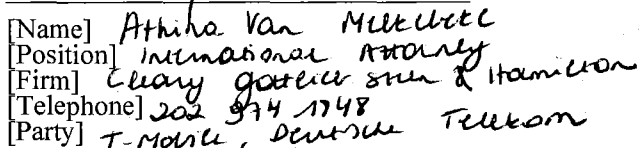 [Name] Athina Van
[Position] International Attorney
[Firm] Cleary Gottlieb Steen & Hamilton
[Telephone] 202 974 1748
[Party] T-Mobile, Deutsche Telekom